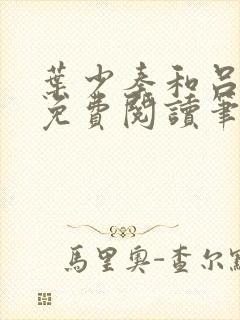 葉少秦和呂
免費閱讀筆
馬里奧-查尔